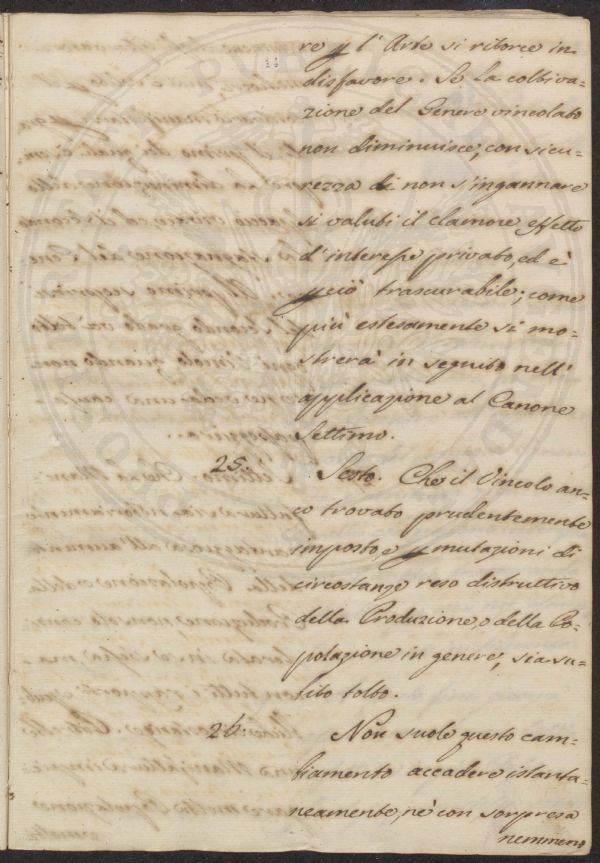 14
re p l'Arte si ritorce in
disfavore. Se la coltiva=
zione del Genere vincolato
non diminuisce, con sicu=
rezza di non s'ingannare
si valuti il clamore effetto
d'interesse privato, ed è
pciò trascurabile; come
più estesamente si mo=
strerà in seguito nell'
applicazione al Canone
Settimo.
25. Sesto. Che il Vincolo an=
co trovato prudentemente
imposto, e p mutazioni di
circostanze reso distruttivo
della Produzione, o della Po=
polazione in genere, sia su=
bito tolto.
26. Non suole questo cam=
biamento accadere istanta=
neamente, nè con sorpresa
nemmeno